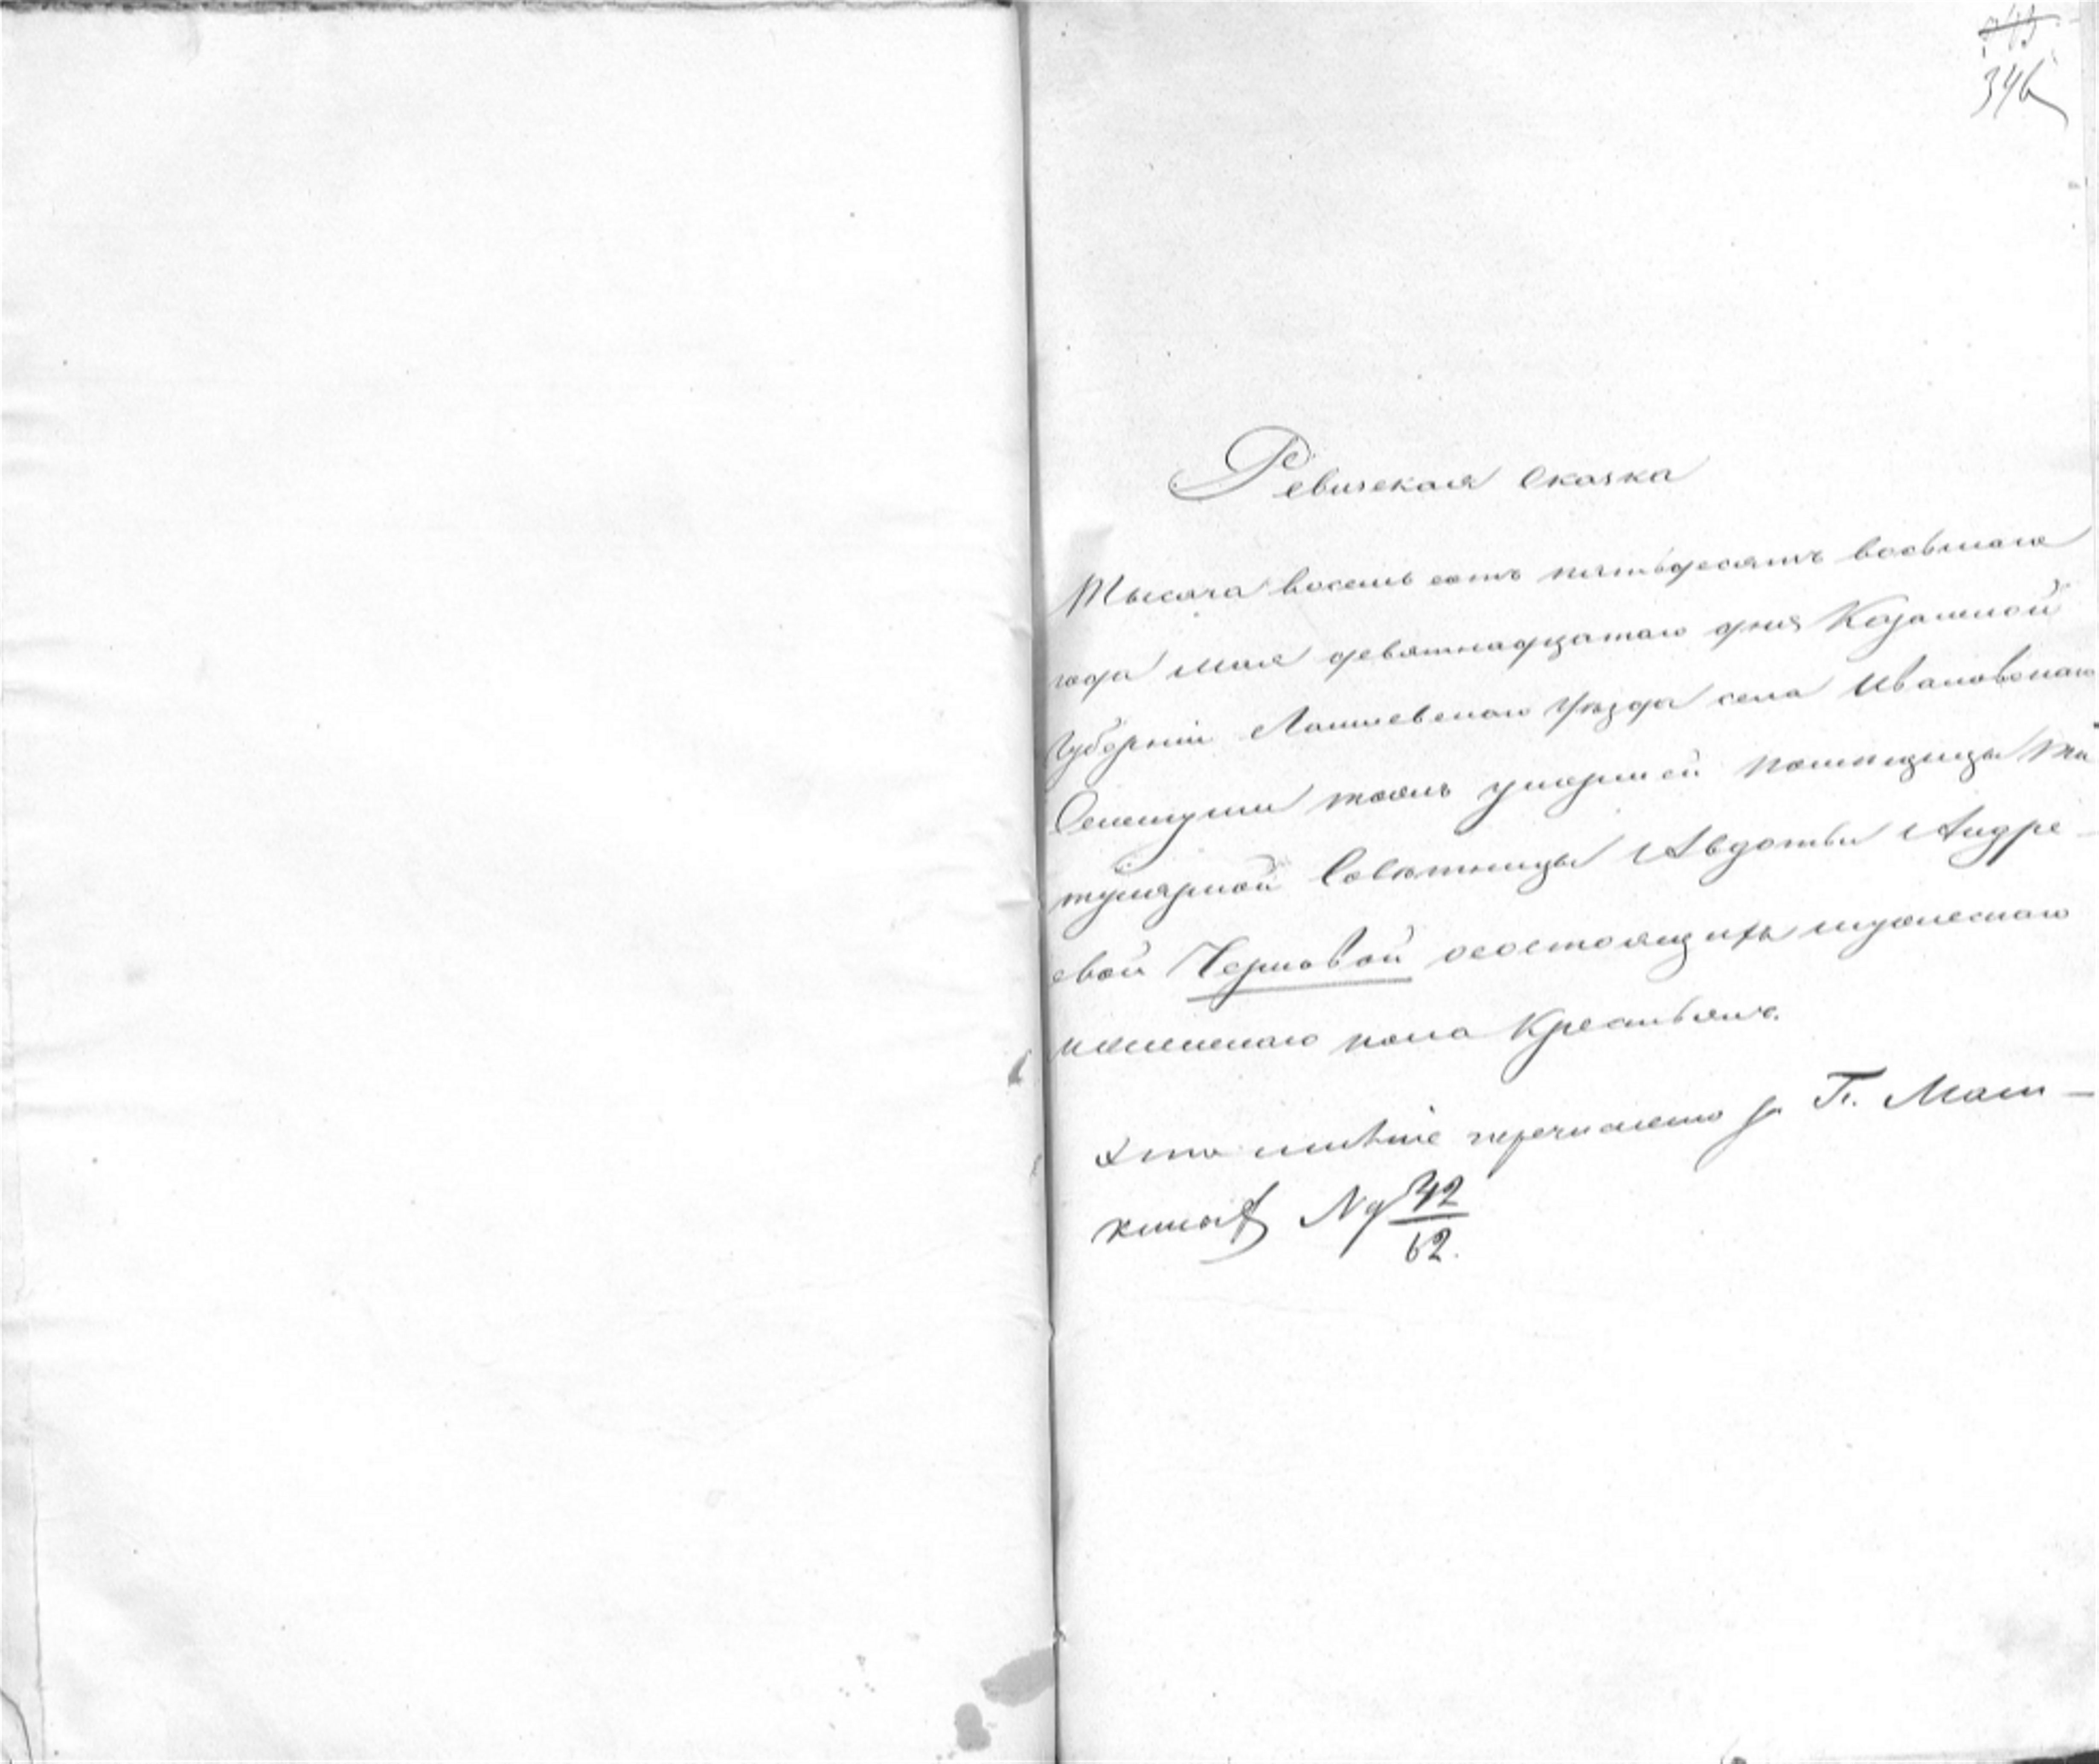 346
Ревизская сказка
Тысяча восемь сотъ пятьдесятъ восьмаго
года мая девятнадцатаго дня Казанской
Губерніи Лаишевскаго Уѣзда села Ивановскаго
тожъ умершей помещицы Ти
тулярной Совѣтницы Авдотьи Андре-
евой Черновой осостоящихъ мужескаго
и женскаго пола Крестьянъ.
Это имѣніе перечислено за Г.
№ 42
62.